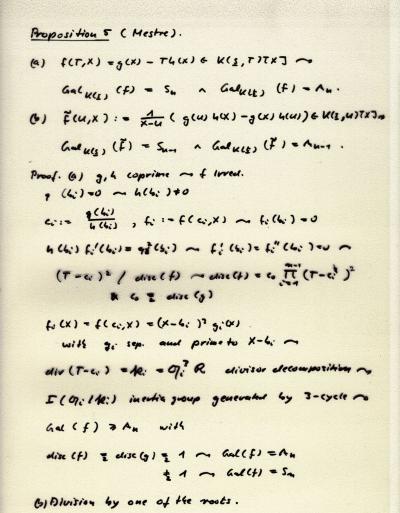 Proposition 5 (Mestre).
(a) f(T,X) = g(X) - T h(X) ∈ K(ξ,T)[X] ⤳
Gal_{K(ξ)} (f) = S_n ∧ Gal_{K(ξ)} (f) = A_n.
(b) f̃(u,X) := 1/(X-u) (g(u) h(X) - g(X) h(u)) ∈ K(ξ,u)[X] ⤳
Gal_{K(ξ)} (f̃) = S_{n-1} ∧ Gal_{K(ξ)} (f̃) = A_{n-1}.
Proof. (a) g, h coprime ⤳ f irred.
(b_i) = 0 ⤳ h(b_i) ≠ 0
c_i := g(b_i)/h(b_i), f_i := f(c_i,X) ⤳ f_i(b_i) = 0
⤳ f_i'(b_i) = f_i''(b_i) = 0 ⤳
(T-c_i)² / disc(f) ⤳ disc(f) = c_0 ∏ (T-c_i)²
c_0 ≡ disc(g)
f_i(X) = f(c_i,X) = (X-b_i)³ g_i(X)
with g_i sep. and prime to X-b_i ⤳
div(T-c_i) = R divisor decomposition ⤳
inertia group generated by 3-cycle ⤳
Gal(f) ≥ A_n with
disc(f) ≡ disc(g) ≡ 1 ⤳ Gal(f) = A_n
≢ 1 ⤳ Gal(f) = S_n
(b) Division by one of the roots.